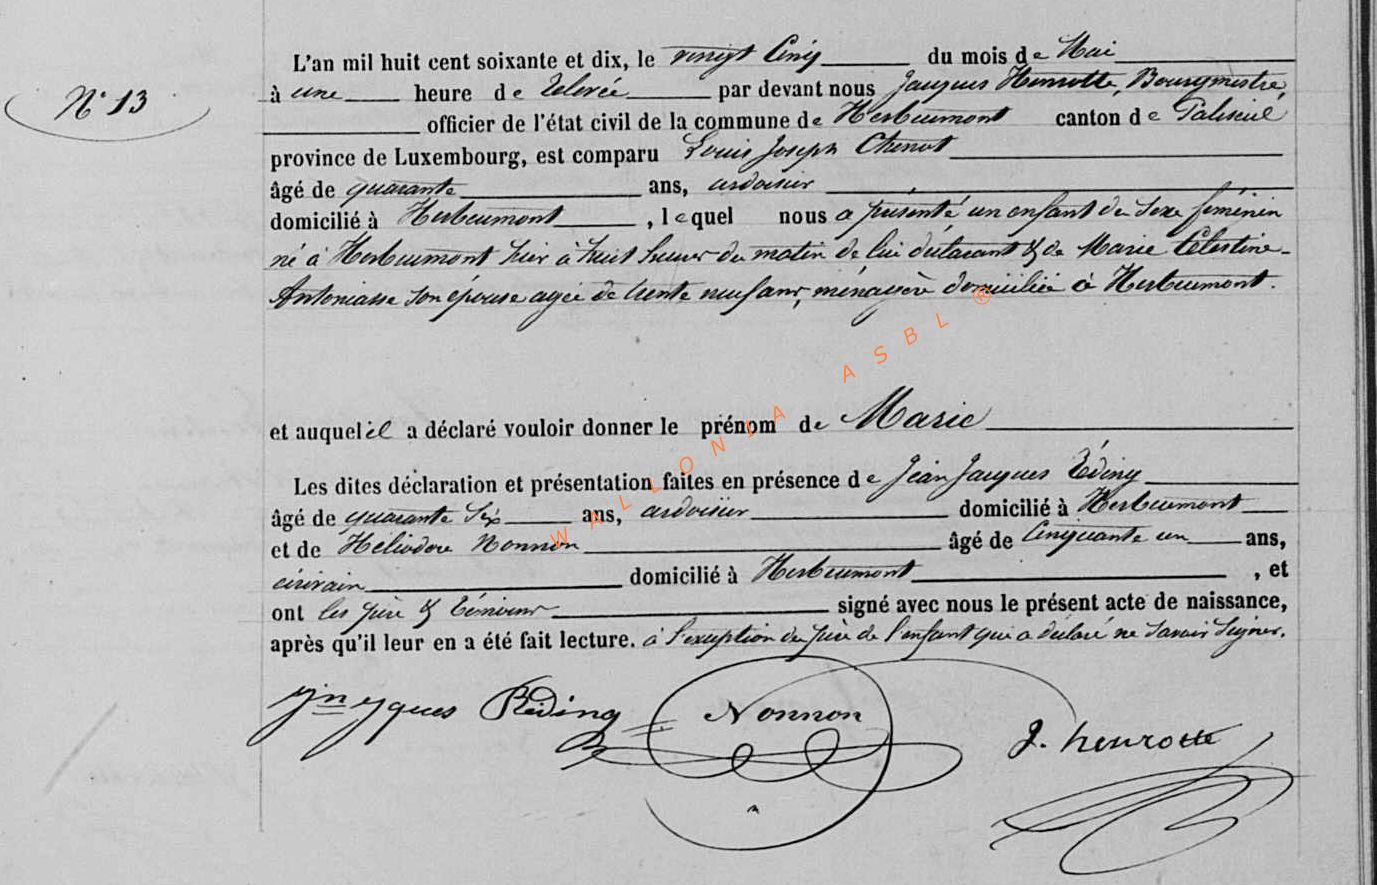 N° 13
L'an mil huit cent soixante et dix, le vingt Cinq du mois de Mai
à une heure de relevée par devant nous Jacques Henrotte, Bourgmestre,
officier de l'état civil de la commune de Herbeumont canton de Paliseul
province de Luxembourg, est comparu Louis Joseph Chenot
âgé de quarante ans, ardoisier
domicilié à Herbeumont, lequel nous a présenté un enfant du sexe féminin
né à Herbeumont hier à huit heures du matin de lui déclarant & de Marie Célestine-
Antoniasse son épouse agée de trente neuf ans, ménagère domiciliée à Herbeumont.
et auquel il a déclaré vouloir donner le prénom de Marie
Les dites déclaration et présentation faites en présence de Jean Jacques Réding
âgé de quarante six ans, ardoisier domicilié à Herbeumont
et de Héliodore Nonnon âgé de Cinquante un ans,
écrivain domicilié à Herbeumont, et
ont les père & témoins signé avec nous le présent acte de naissance,
après qu'il leur en a été fait lecture. à l'exception du père de l'enfant qui a déclaré ne savoir signer.
Jn Jques Réding Nonnon J. henrotte
WALLONIA ASBL ®